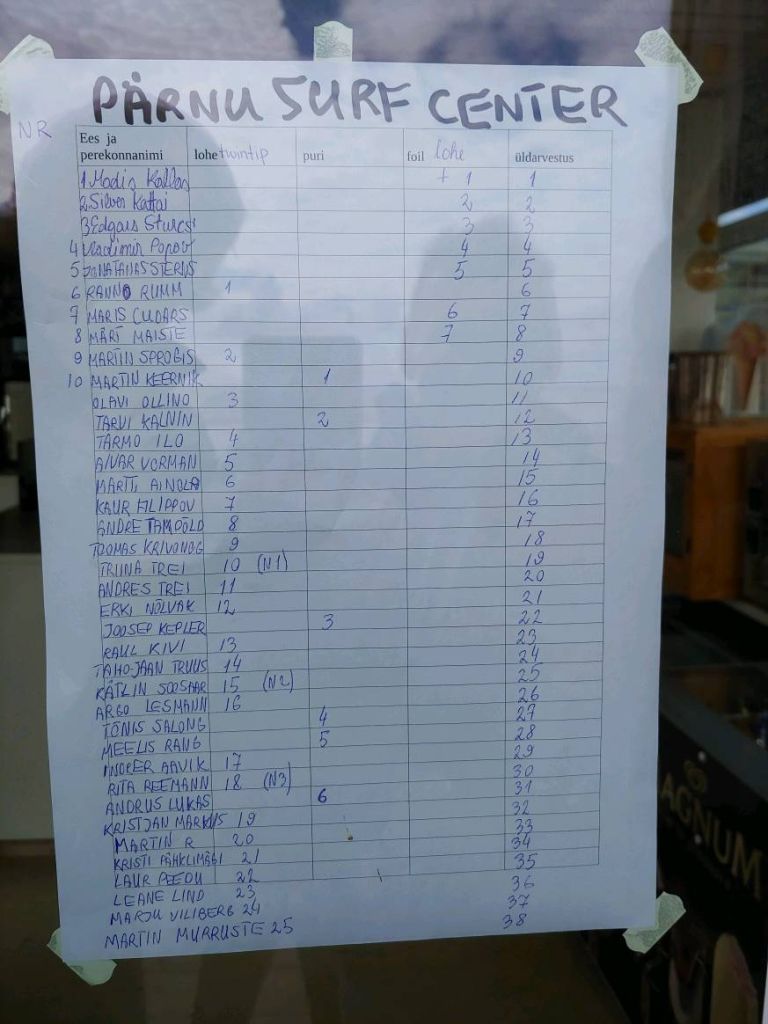 PÄRNU SURF CENTER
NR
Ees ja perekonnanimi lohe twintip puri foil lohe üldarvestus
1 Madis Kallas 1 1
2 Silver Kattai 2 2
3 Edgars 3 3
4 Vladimir Popov 4 4
5 5 5
6 RANNO RUMM 1 6
7 MARIS CUDARS 6 7
8 MÄRT MAISTE 7 8
9 MARTIN SPROGIS 2 9
10 MARTIN KEERNIK 1 10
OLAVI OLLINO 3 11
TARVI KALNIN 2 12
TARMO ILO 4 13
AIVAR VORMAN 5 14
MARTTI AINOLA 6 15
KAUR FILIPPOV 7 16
ANDRE TAMPÕLD 8 17
TOOMAS KRIVONOG 9 18
TRIINA TREI 10 (N1) 19
ANDRES TREI 11 20
ERKI NÕLVAK 12 21
JOOSEP KEPLER 3 22
RAUL KIVI 13 23
TAHO-JAAN TRUUS 14 24
KÄTLIN SOOSAAR 15 (N2) 25
ARGO LESMANN 16 26
TÕNIS SALONG 4 27
MEELIS RANG 5 28
AAVIK 17 29
RITA REEMANN 18 (N3) 30
ANDRUS LUKAS 6 31
KRISTJAN MARKUS 19 32
MARTIN R 20 33
KRISTI PÄHKLIMÄGI 21 34
LAUR PEEDU 22 35
LEANE LIND 23 36
MARJU VILIBERG 24 37
MARTIN MURRUSTE 25 38
AGNUM